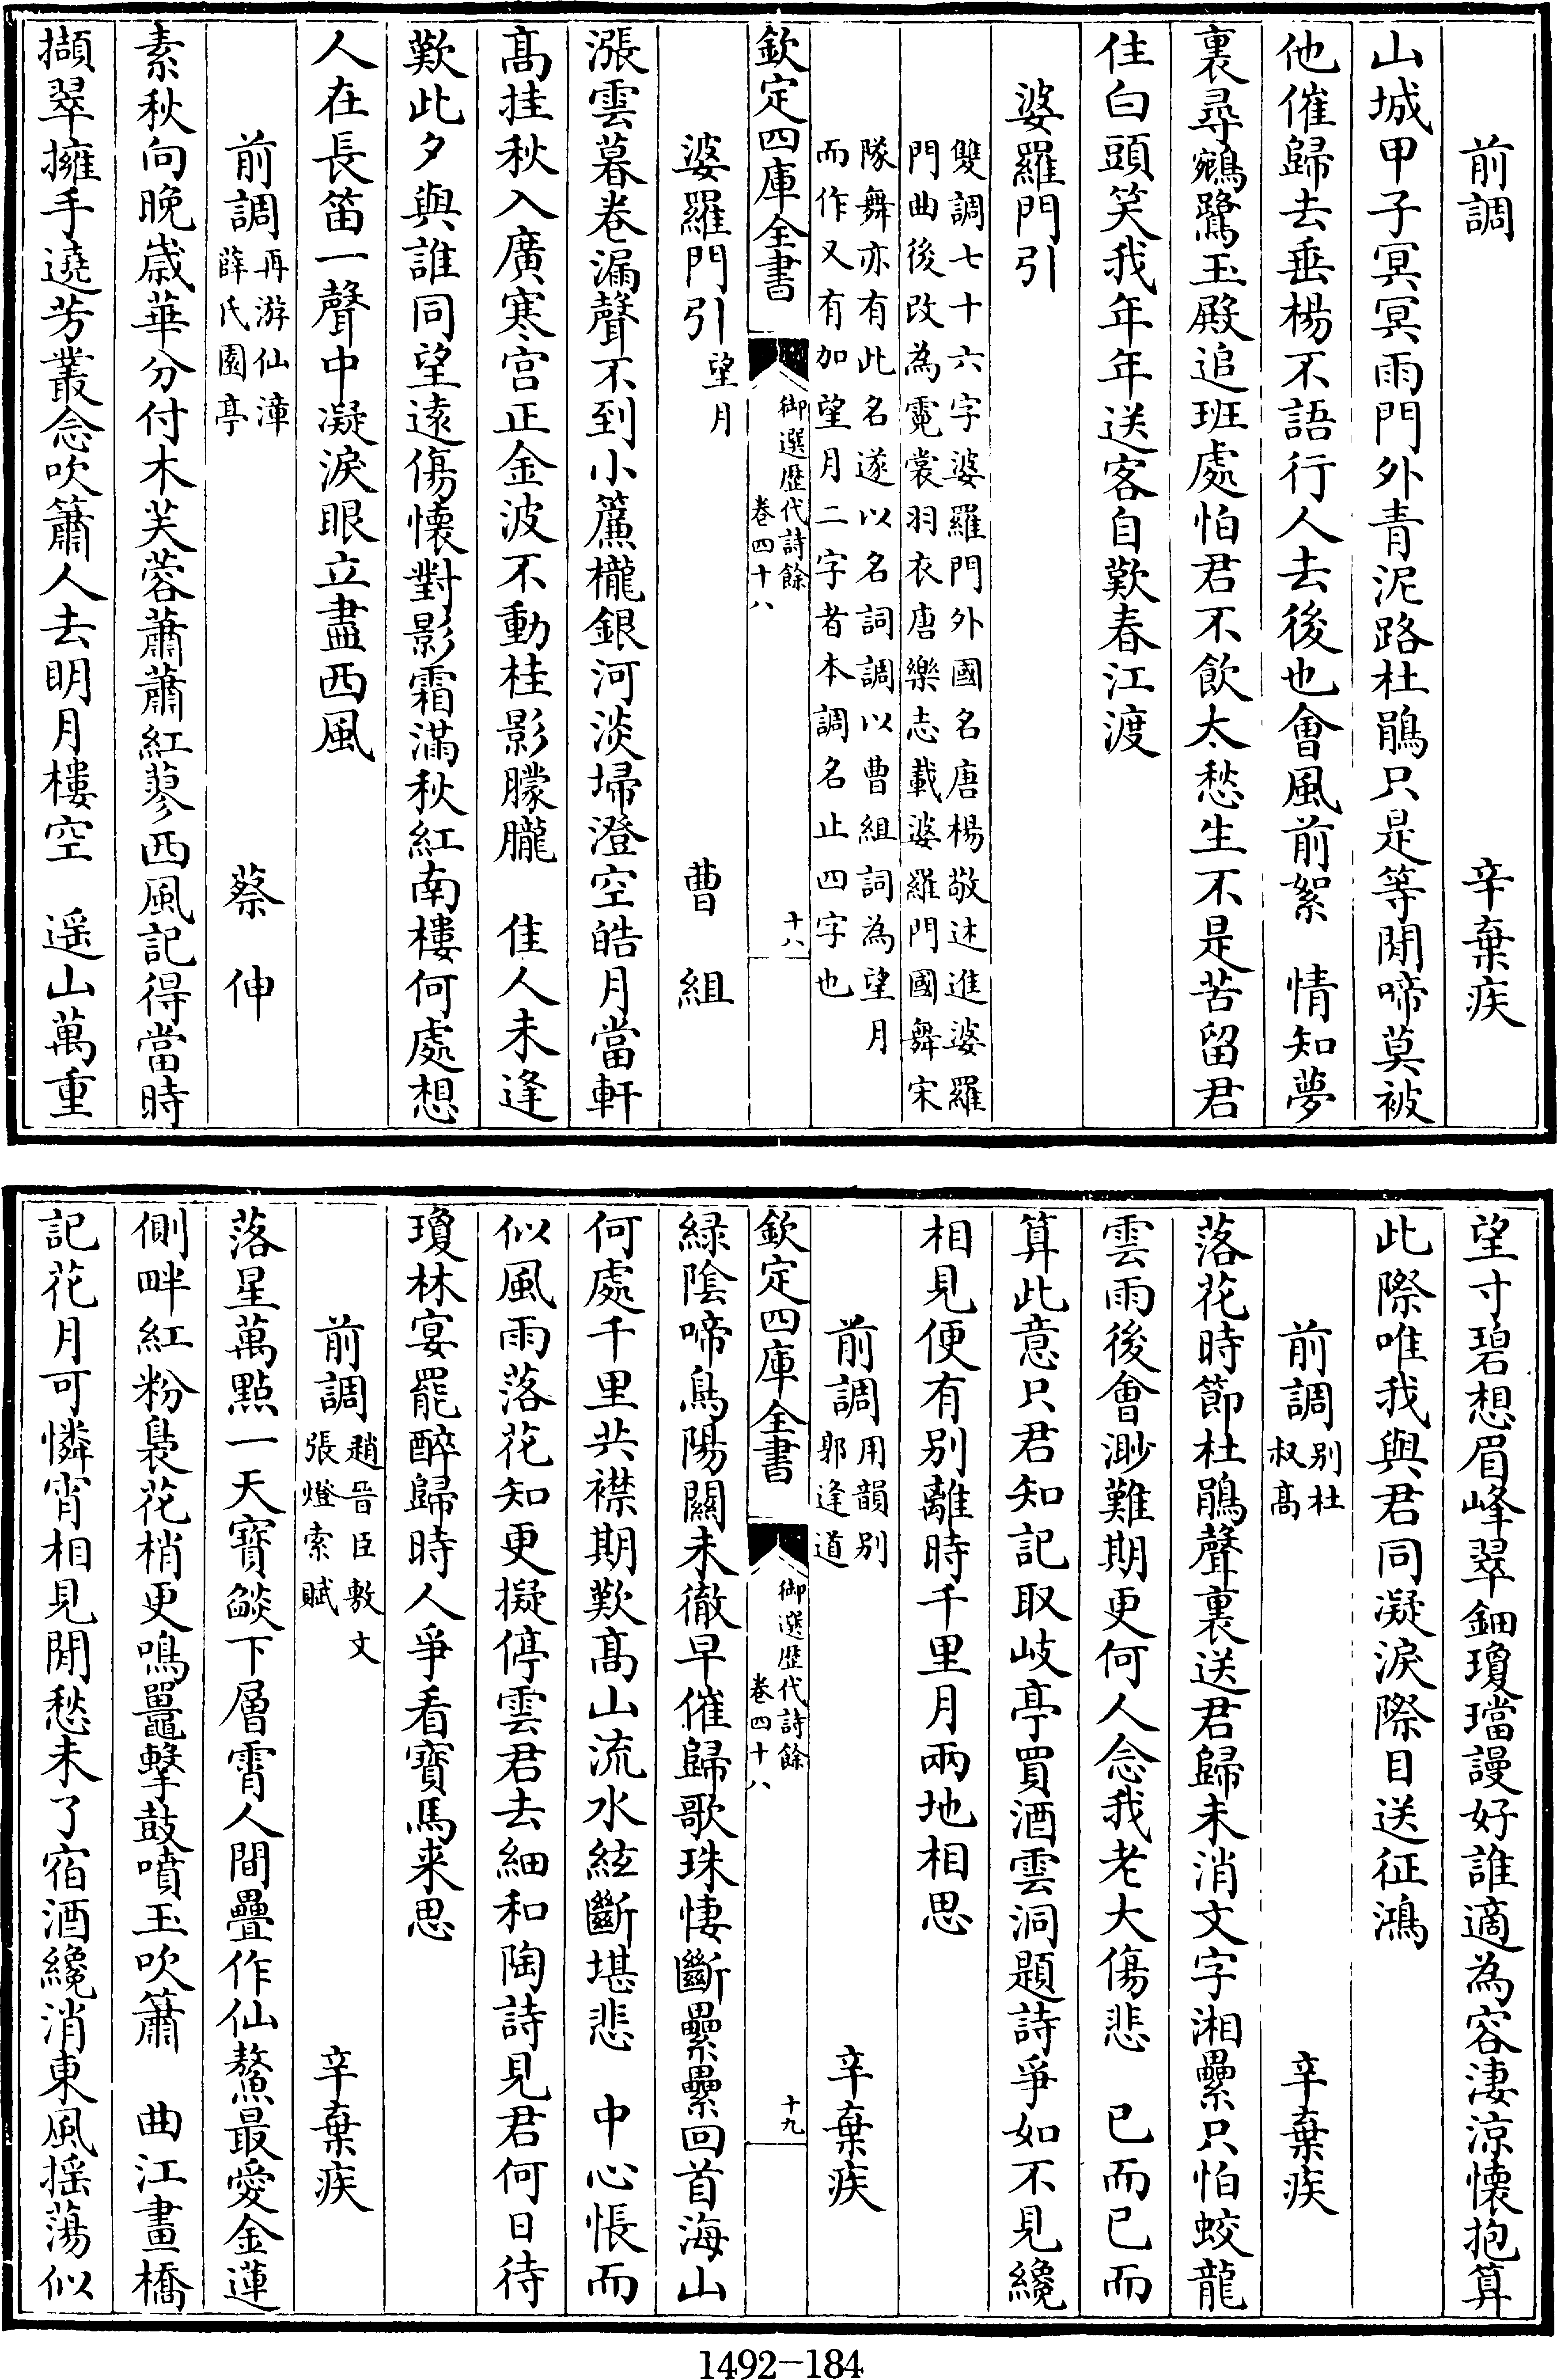 前調　辛棄疾
山城甲子冥冥雨門外青泥路杜鵑只是等閒啼莫被
他催歸去垂楊不語行人去後也會風前絮　情知夢
裏尋鵷鷺玉殿追班處怕君不飲太愁生不是苦留君
住白頭笑我年年送客自歎春江渡
婆羅門引
雙調七十六字婆羅門外國名唐楊敬述進婆羅
門曲後改為霓裳羽衣唐樂志載婆羅門國舞宋
隊舞亦有此名遂以名詞調以曹組詞為望月
而作又有加望月二字者本調名止四字也
欽定四庫全書
御選歷代詩餘
卷四十八
十八
婆羅門引望月　曹組
漲雲暮卷漏聲不到小簾櫳銀河淡埽澄空皓月當軒
髙挂秋入廣寒宫正金波不動桂影朦朧　佳人未逢
歎此夕與誰同望遠傷懐對影霜滿秋紅南樓何處想
人在長笛一聲中凝淚眼立盡西風
前調再游仙漳薛氏園亭　蔡伸
素秋向晚歳華分付木芙蓉蕭蕭紅蓼西風記得當時
擷翠擁手遶芳叢念吹簫人去明月樓空　遥山萬重
望寸碧想眉峰翠鈿瓊璫謾好誰適為容淒涼懐抱算
此際唯我與君同凝淚際目送征鴻
前調别杜叔髙　辛棄疾
落花時節杜鵑聲裏送君歸未消文字湘纍只怕蛟龍
雲雨後會渺難期更何人念我老大傷悲　已而已而
算此意只君知記取岐亭買酒雲洞題詩爭如不見纔
相見便有别離時千里月兩地相思
前調用韻别郭逢道　辛棄疾
欽定四庫全書
御選歷代詩餘
卷四十八
十九
緑陰啼鳥陽關未徹早催歸歌珠悽斷纍纍回首海山
何處千里共襟期歎髙山流水絃斷堪悲　中心悵而
似風雨落花知更擬停雲君去細和陶詩見君何日待
瓊林宴罷醉歸時人爭看寶馬来思
前調趙晉臣敷文張燈索賦　辛棄疾
落星萬點一天寶燄下層霄人間疊作仙鰲最愛金蓮
側畔紅粉裊花梢更鳴鼉擊鼓噴玉吹簫　曲江畫橋
記花月可憐宵相見閒愁未了宿酒纔消東風揺蕩似
1492-184